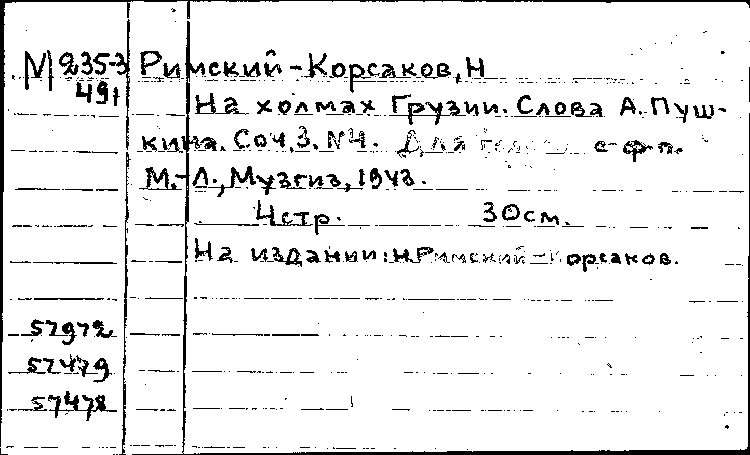 М 235-3 Римский-Корсаков, Н
491
На холмах Грузии. Слова А. Пуш-
кина. Соч. 3. №4. Для с ф-п.
М.-Л., Музгиз, 1943.
4 стр. 30 см.
На издании: Н. Римский-Корсаков.
57972
57479
57478